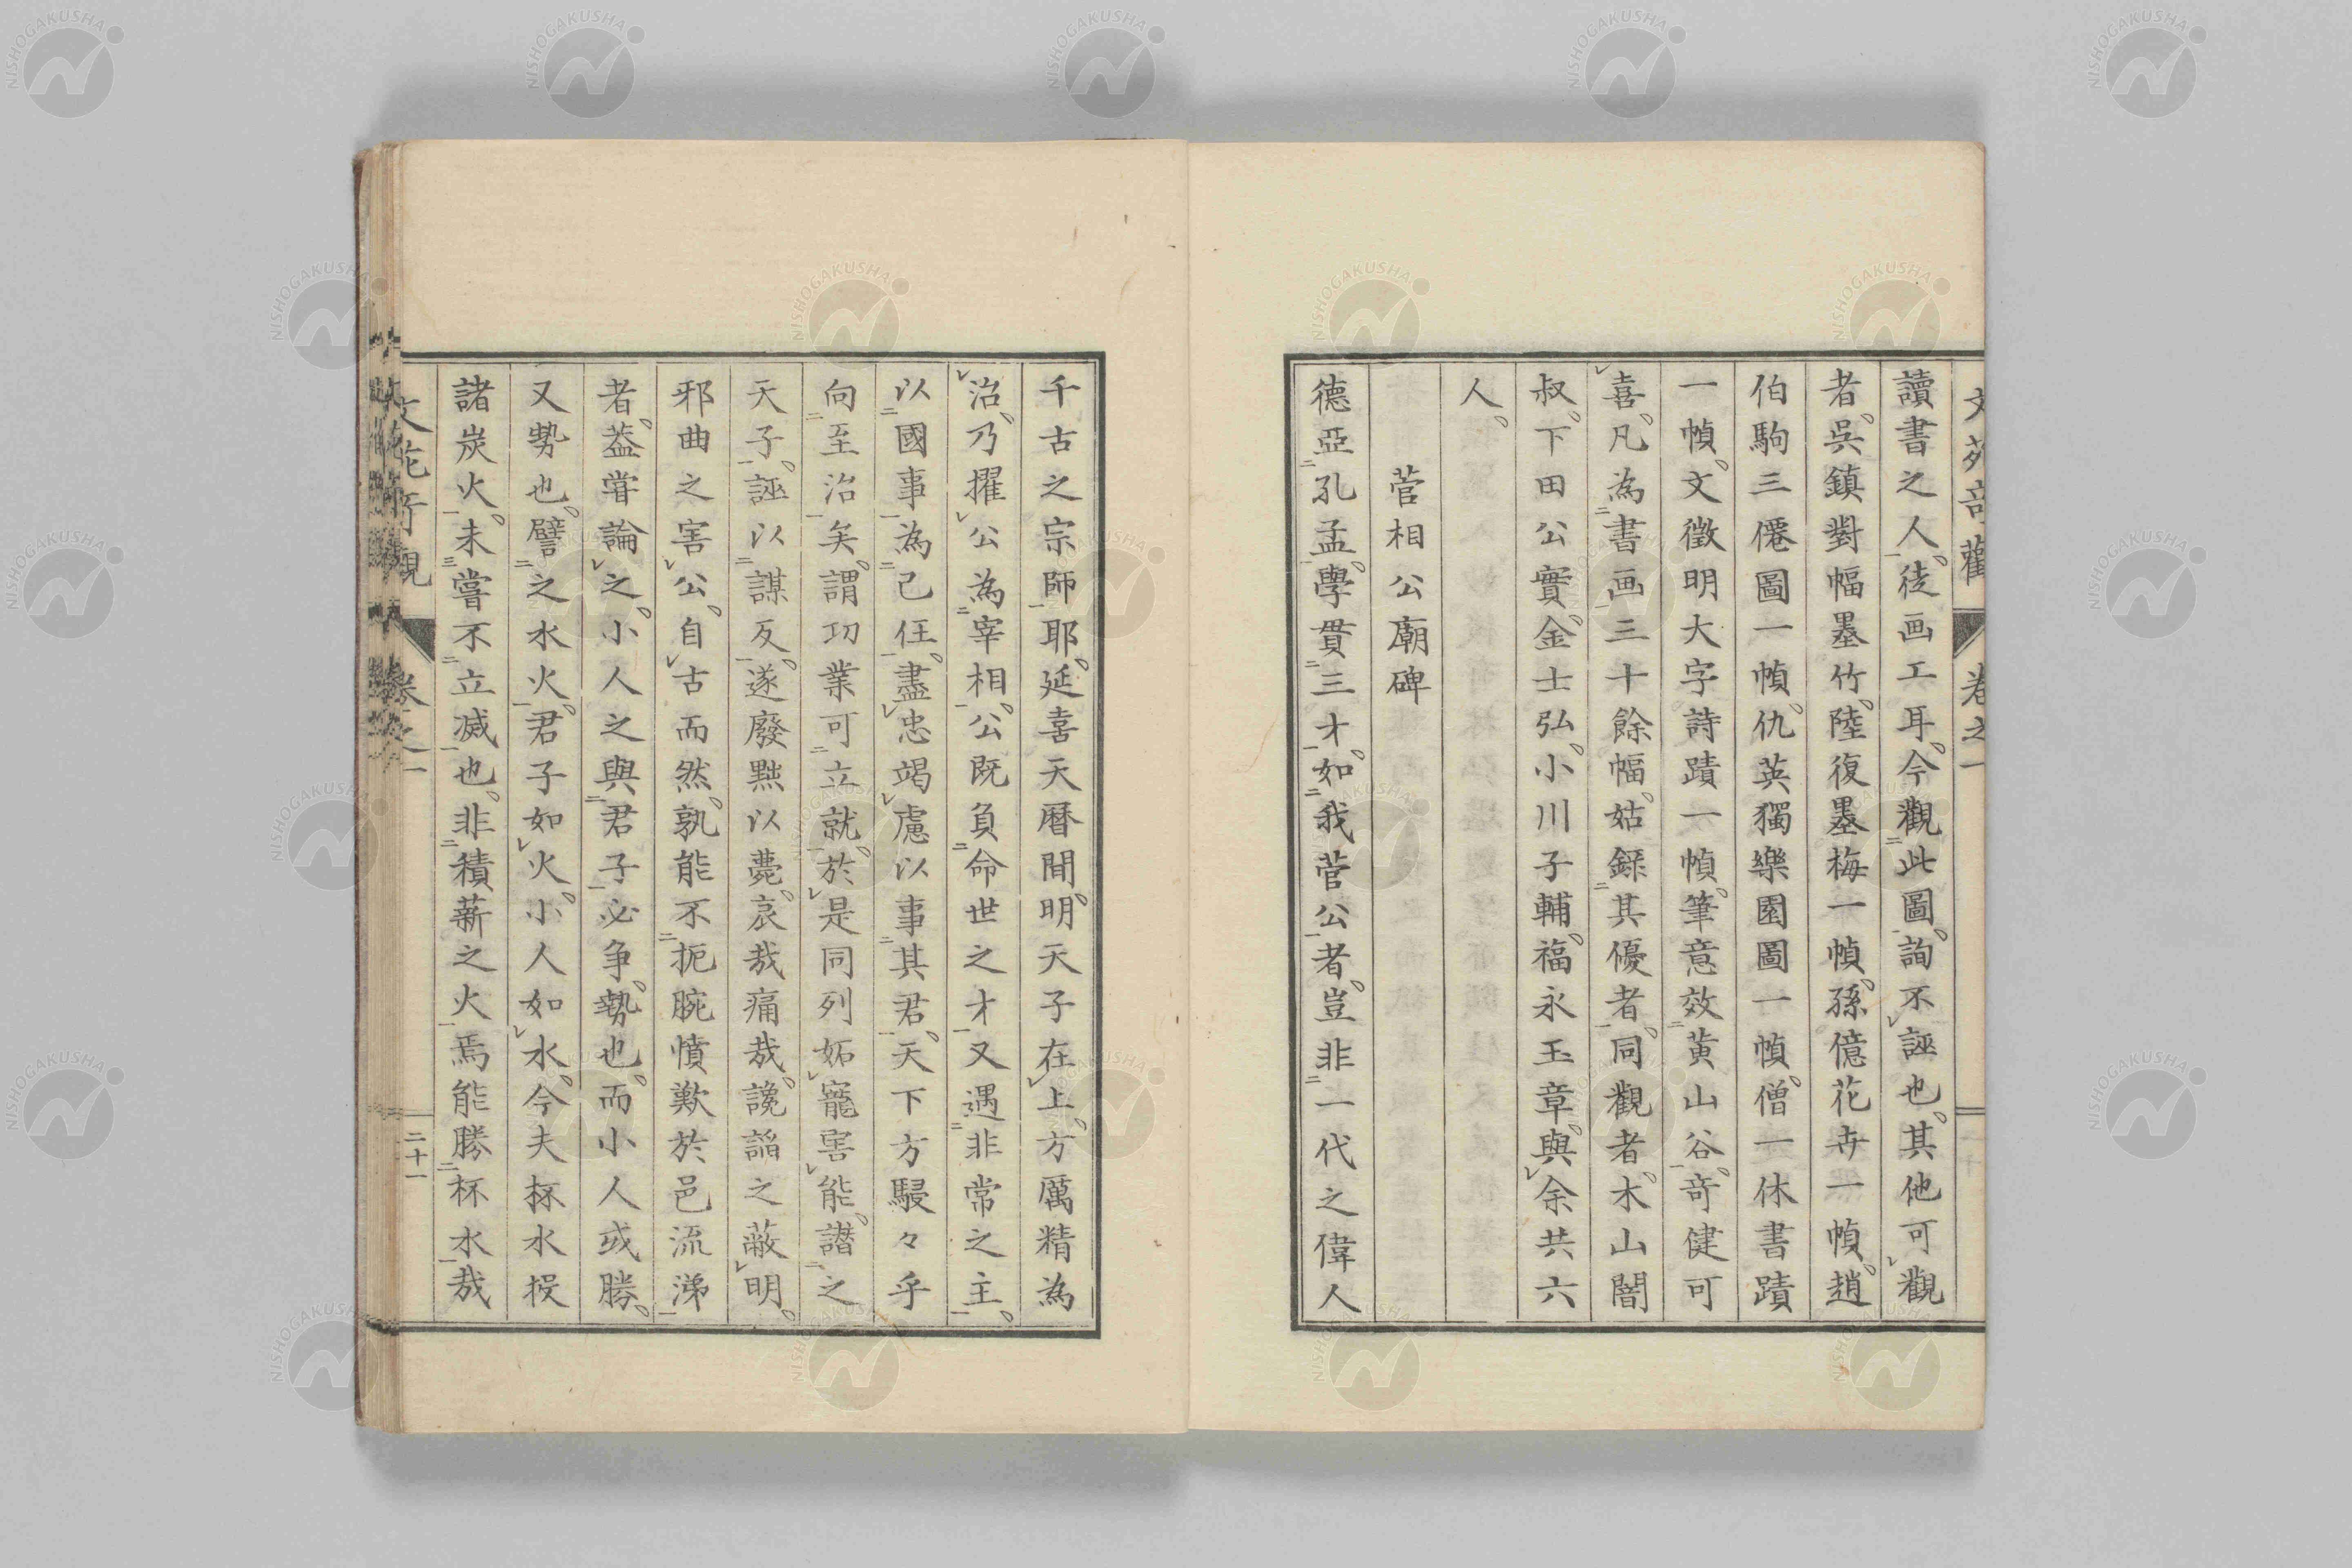 讀書之人徒画工耳今觀此圖詢不誣也其他可觀
者吳鎮對幅墨竹陸復墨梅一幀孫億花卉一幀趙
伯駒三僊圖一幀仇英獨樂園圖一幀僧一休書蹟
一幀文徵明大字詩蹟一幀筆意效黃山谷竒健可
喜凡為書画三十餘幅姑録其優者同觀者木山闇
叔下田公實金士弘小川子輔福永玉章與余共六
人
菅相公廟碑
德亞孔孟學貫三才如我菅公者豈非一代之偉人
千古之宗師耶延喜天曆間明天子在上方厲精為
治乃擢公為宰相公既負命世之才又遇非常之主
以國事為己任盡忠竭慮以事其君天下方駸々乎
向至治矣謂功業可立就於是同列妬寵害能譖之
天子誣以謀反遂廢黜以薨哀哉痛哉讒諂之蔽明
邪曲之害公自古而然孰能不扼腕憤歎於邑流涕
者葢甞論之小人之與君子必争勢也而小人或勝
又勢也譬之水火君子如火小人如水今夫杯水投
諸炭火未嘗不立滅也非積薪之火焉能勝杯水哉
卷之一
二十一